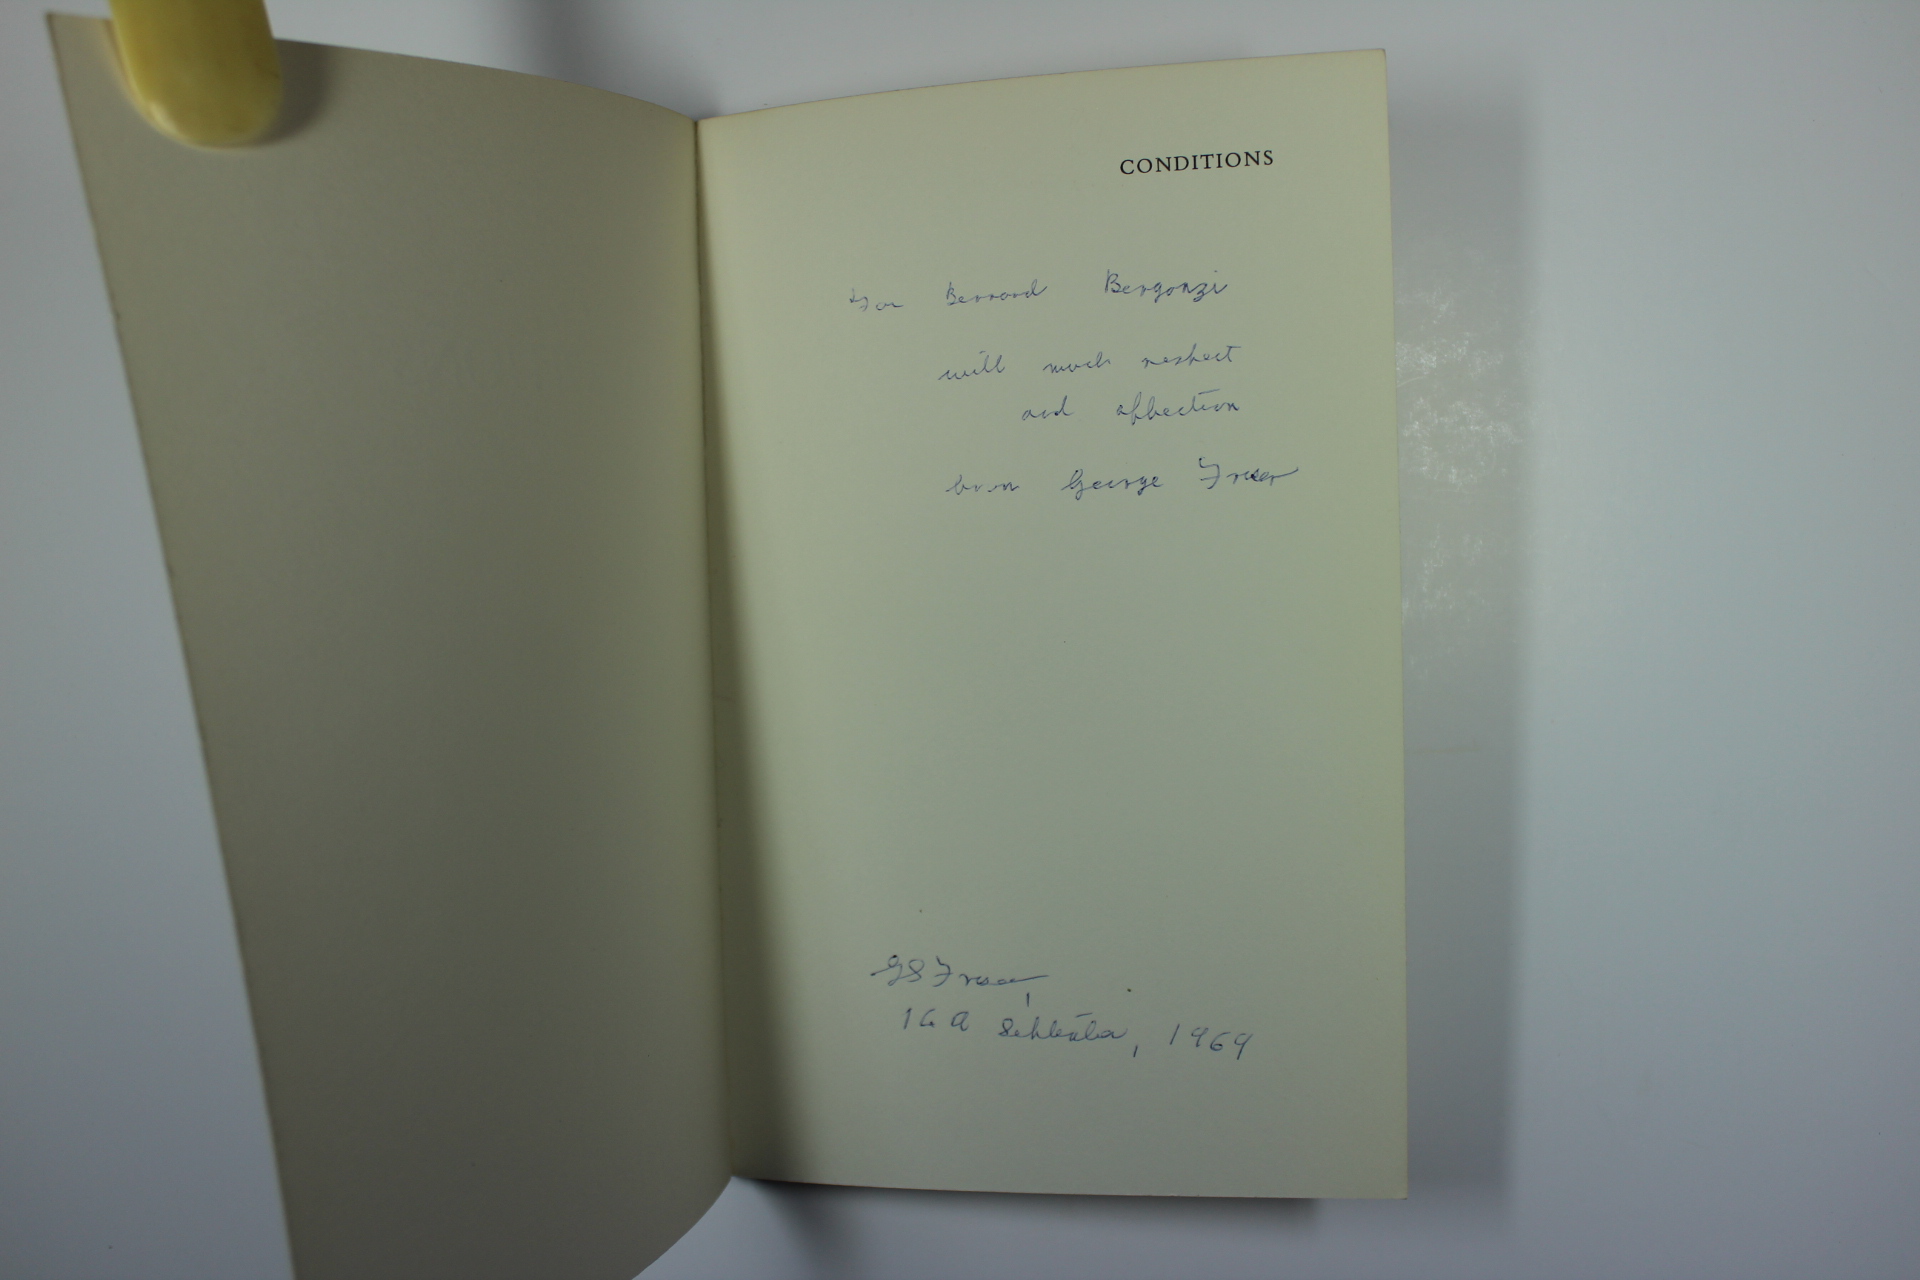 CONDITIONS
For Bernard Bergonzi
with much respect
and affection
from George Fraser
GS Fraser,
September, 1969